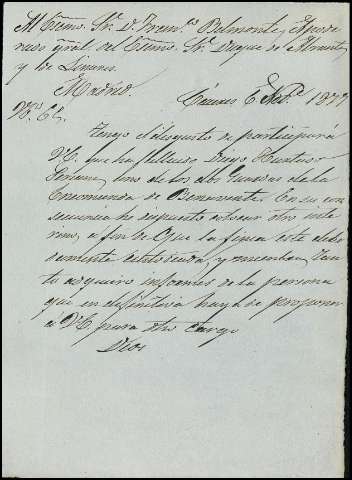 Al Excmo. Sr. D. Franco. Belmonte, Apode
rado gral. del Excmo. Sr. Duque de Abrantes
y de Linares.
Madrid.
Cáceres 6 Feb.º 1877
Tengo el disgusto de participar á
V.E. que ha fallecido Diego Hurtado
uno de los dos Guardas de la
Encomienda de Benavente. En su con
secuencia he dispuesto colocar otro inte
rino, á fin de que la finca esté debi
damente custodiada, y mientras tan
to adquiero informes de la persona
que en definitiva haya de proponer
á V.E. para dho cargo
Dios